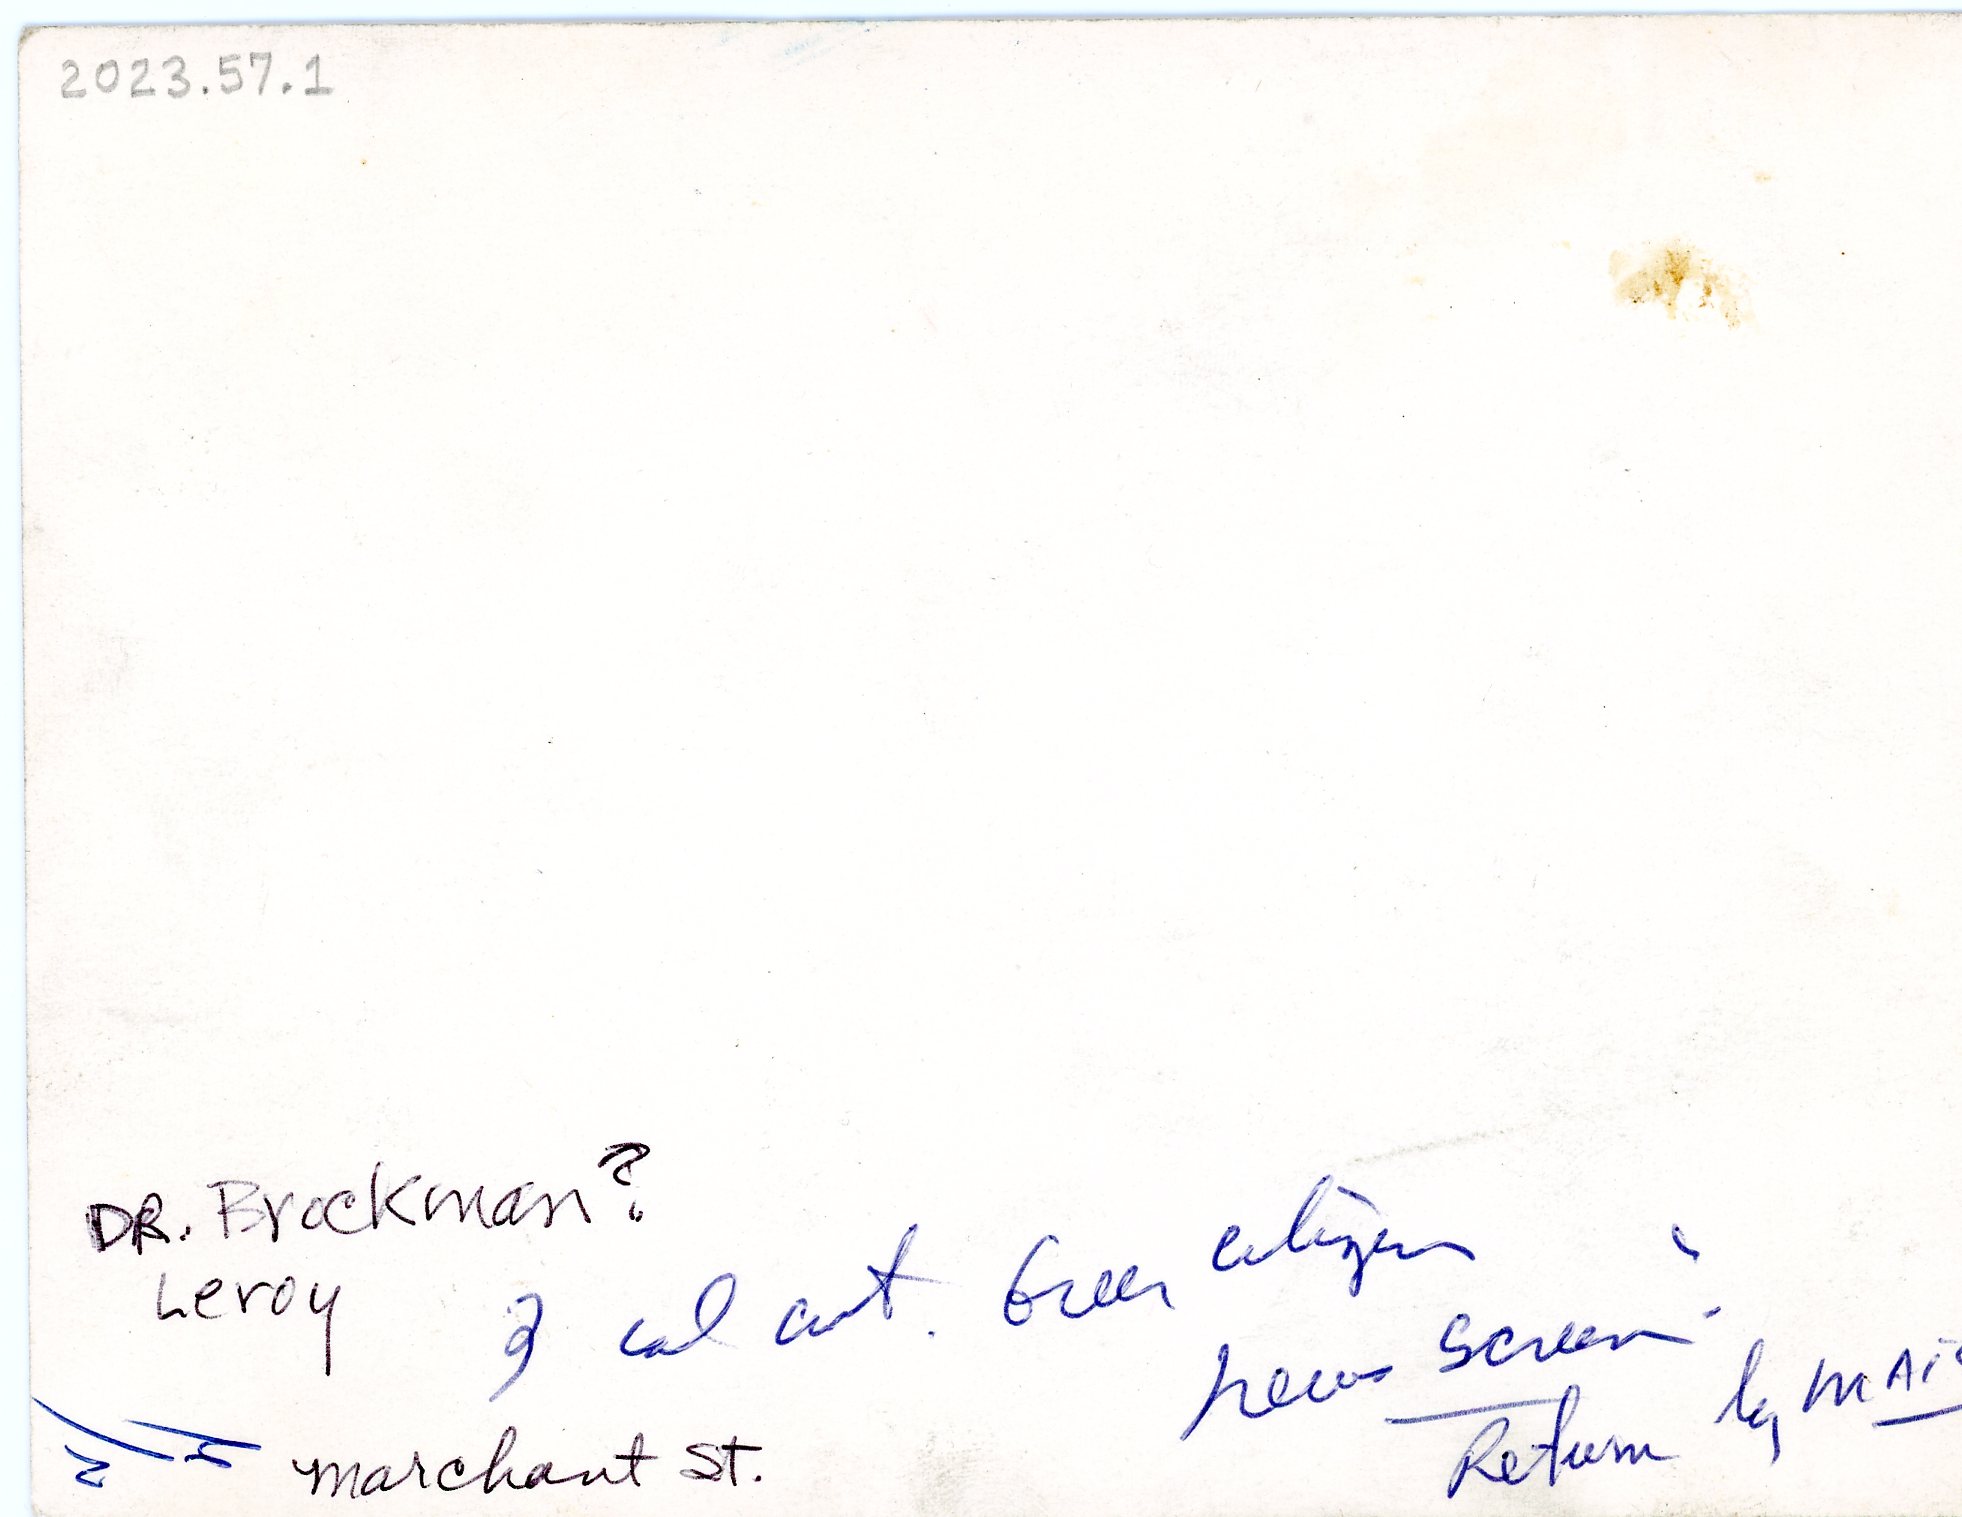 2023.57.1
DR. Brockman?
Leroy
2 col cut. Greer citizen
news screen
Return by MAi
marchant St.